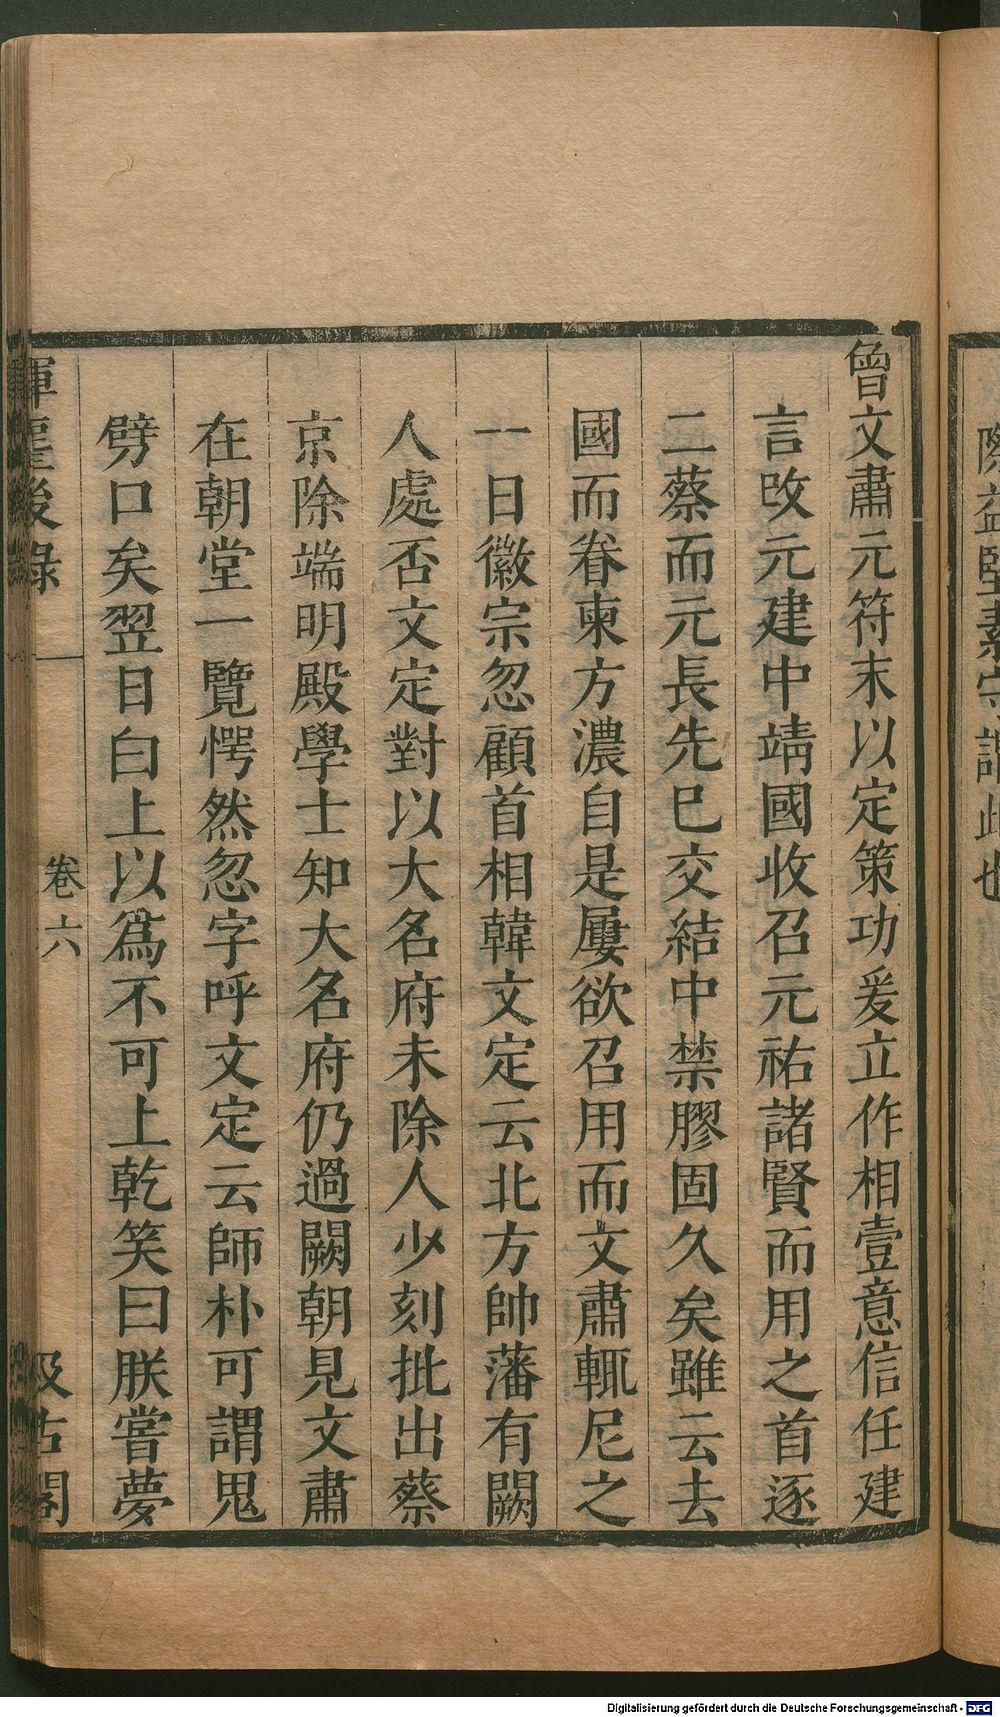 際益堅素守謂此也
曾文肅元符末以定策功爰立作相壹意信任建
言改元建中靖國收召元祐諸賢而用之首逐
二蔡而元長先已交結中禁膠固久矣雖云去
國而眷柬方濃自是屢欲召用而文肅輒尼之
一日徽宗忽顧首相韓文定云北方帥藩有闕
人處否文定對以大名府未除人少刻批出蔡
京除端明殿學士知大名府仍過闕朝見文肅
在朝堂一覽愕然忽字呼文定云師朴可謂鬼
劈口矣翌日白上以爲不可上乾笑曰朕嘗夢
揮麈後錄
卷六
汲古閣
Digitalisierung gefördert durch die Deutsche Forschungsgemeinschaft - DFG